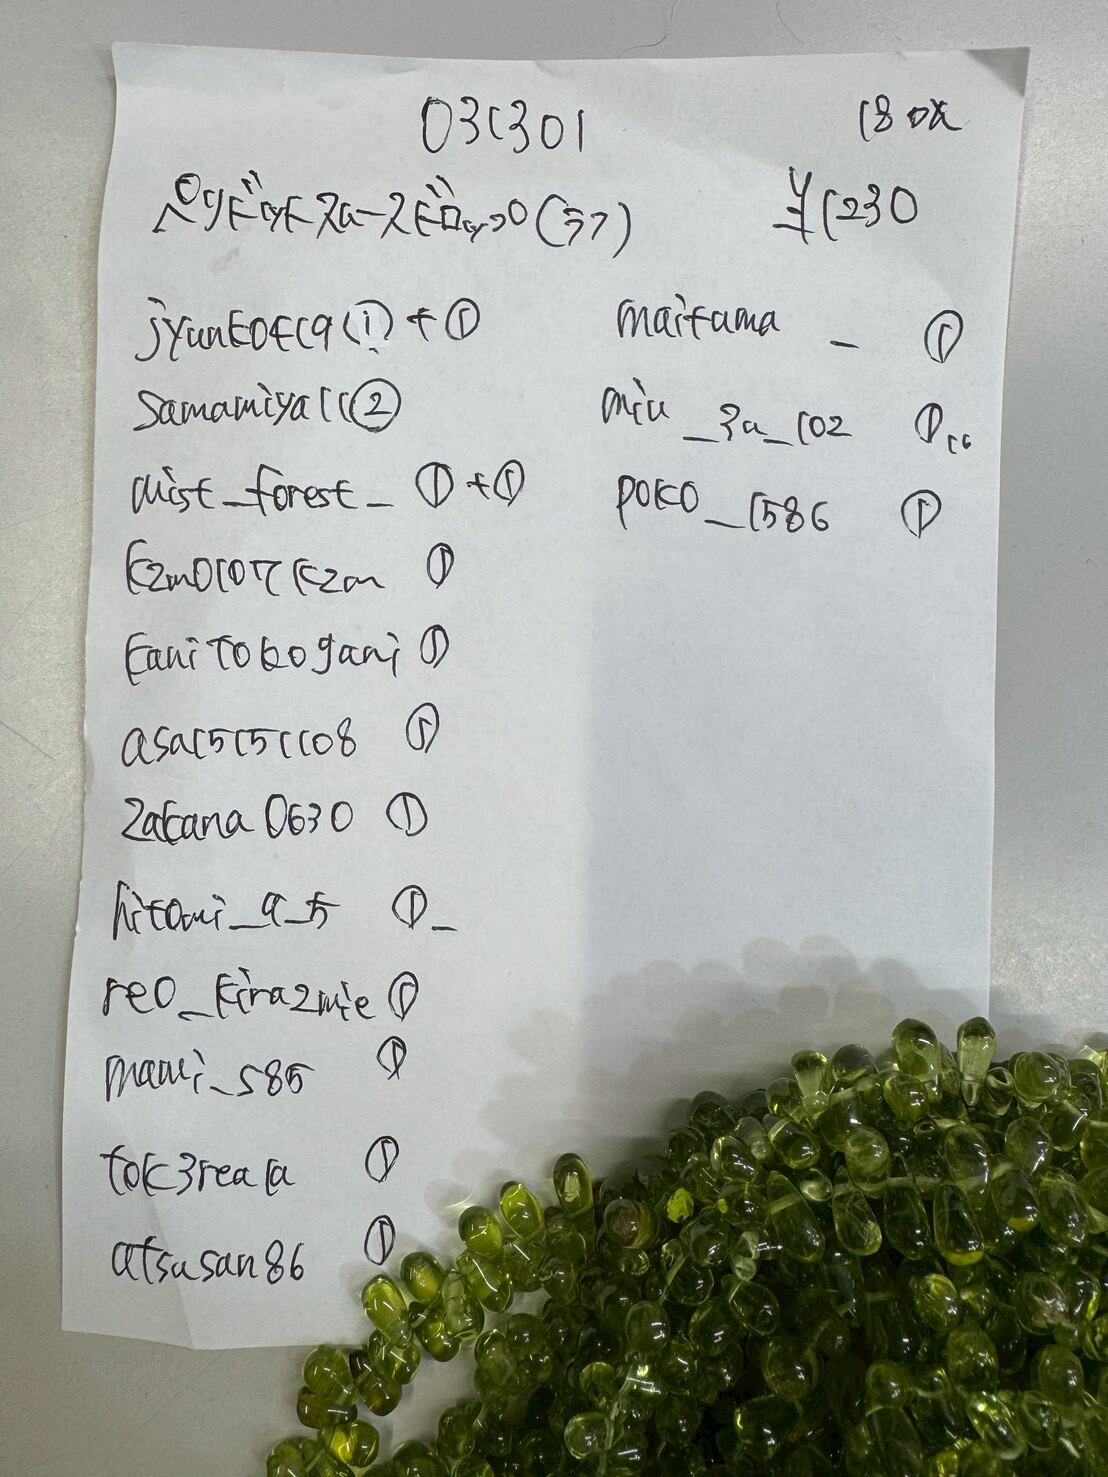 031301
180本
ペリドットスムースドロップ(ラフ)
¥1230
jyunko419 ① + ①
samamiya11 ②
mist_forest_ ① + ①
kzm0107kzm ①
kanitokogani ①
asa15151108 ①
zakana0630 ①
hitomi_9_5 ①
reo_kirazmie ①
mami_s85 ①
tok3reala ①
atsusan86 ①
maitama_ ①
miu_3u_102 ①
poko_1586 ①